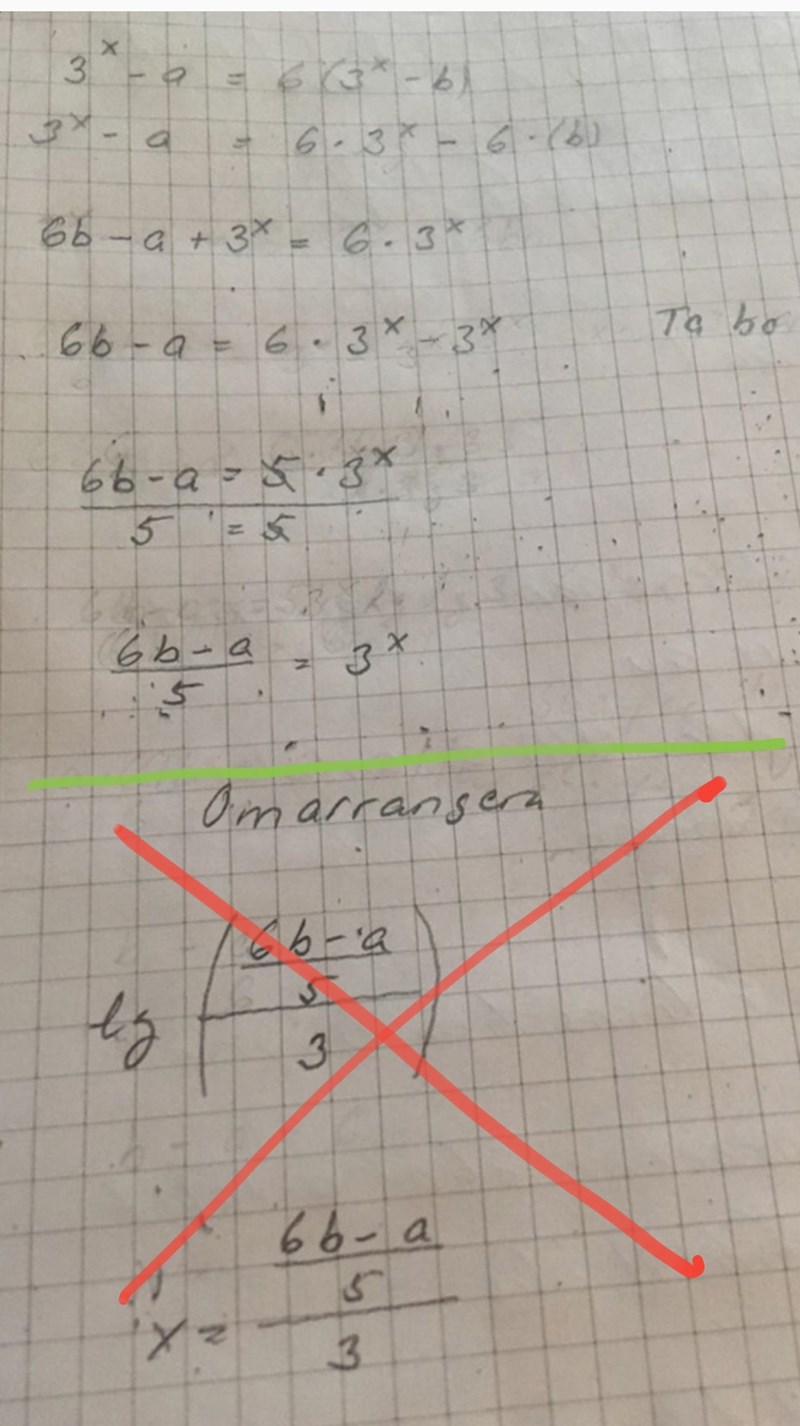 3^x - a = 6(3^x - b)
3^x - a = 6 · 3^x - 6 · (b)
6b - a + 3^x = 6 · 3^x
6b - a = 6 · 3^x - 3^x Ta bo
6b - a = 5 · 3^x
5 = 5
6b - a
5
= 3^x
Omarrangera
lg
6b - a
5
3
6b - a
5
x =
3